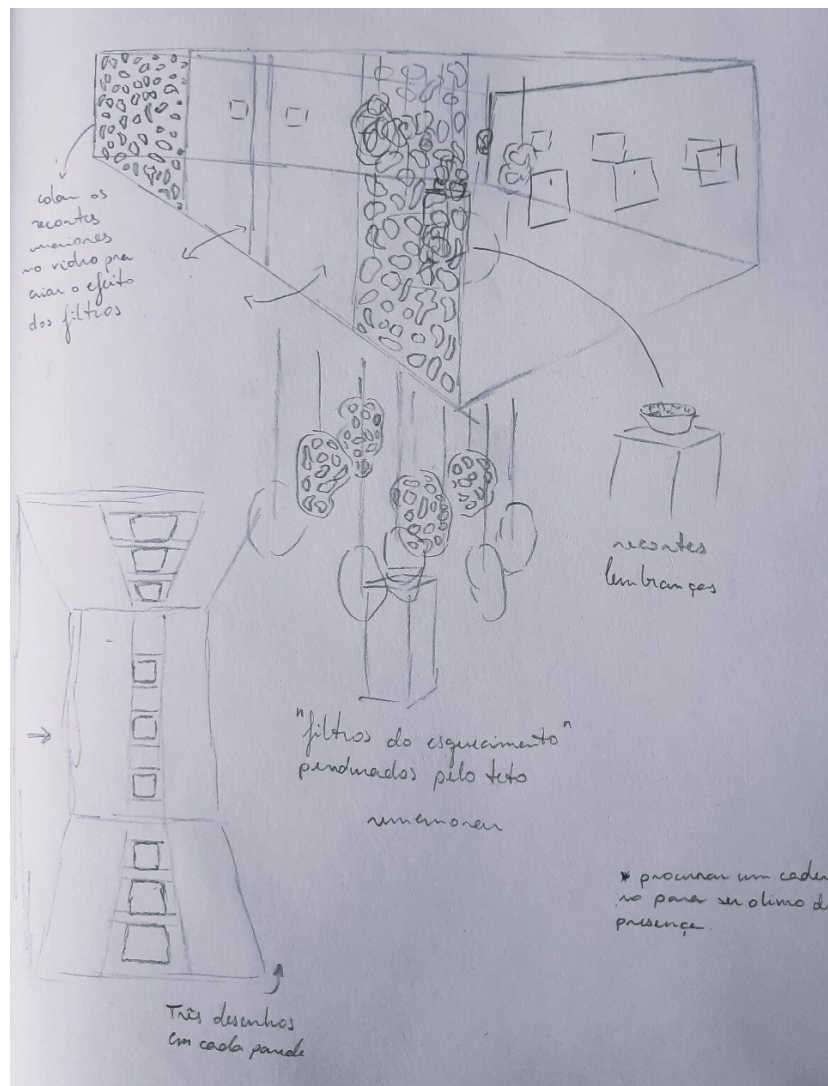 colar os
recortes
maiores
no vidro pra
criar o efeito
dos filtros
recortes
lembranças
"filtros do esquecimento"
pendurados pelo teto
rememorar
* procurar um cader
no para ser o livro de
presença.
Três desenhos
em cada parede